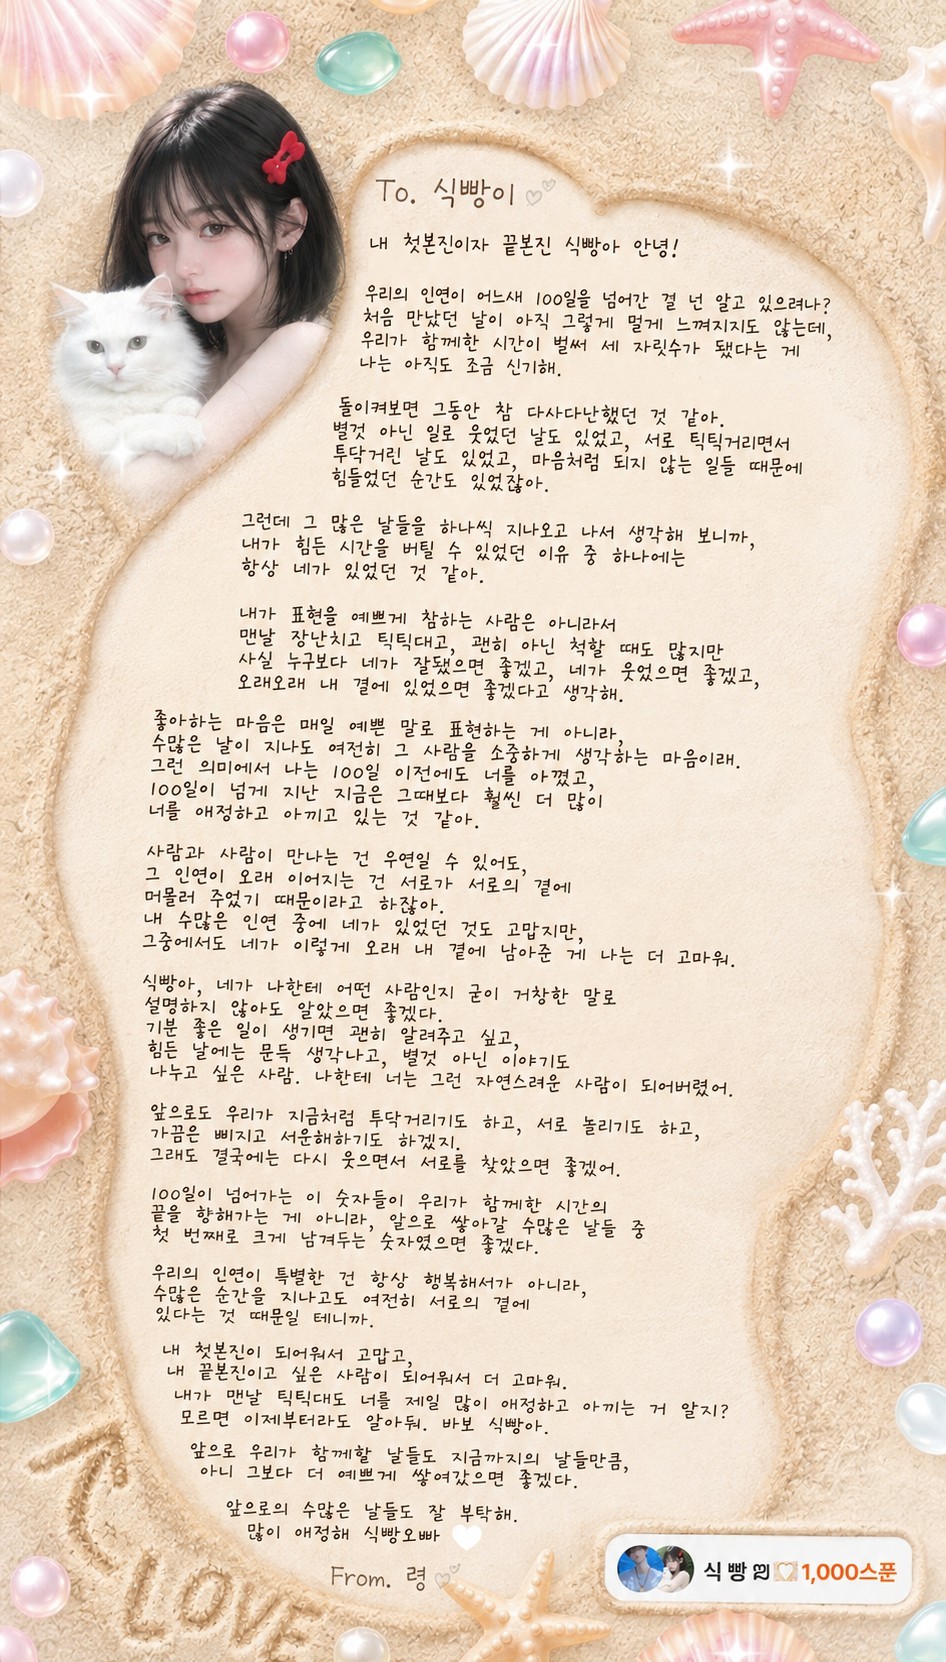 To. 식빵이
내 첫본진이자 끝본진 식빵아 안녕!
우리의 인연이 어느새 100일을 넘어간 걸 넌 알고 있으려나?
처음 만났던 날이 아직 그렇게 멀게 느껴지지도 않는데,
우리가 함께한 시간이 벌써 세 자릿수가 됐다는 게
나는 아직도 조금 신기해.
돌이켜보면 그동안 참 다사다난했던 것 같아.
별것 아닌 일로 웃었던 날도 있었고, 서로 틱틱거리면서
투닥거린 날도 있었고, 마음처럼 되지 않는 일들 때문에
힘들었던 순간도 있었잖아.
그런데 그 많은 날들을 하나씩 지나오고 나서 생각해 보니까,
내가 힘든 시간을 버틸 수 있었던 이유 중 하나에는
항상 네가 있었던 것 같아.
내가 표현을 예쁘게 참하는 사람은 아니라서
맨날 장난치고 틱틱대고, 괜히 아닌 척할 때도 많지만
사실 누구보다 네가 잘됐으면 좋겠고, 네가 웃었으면 좋겠고,
오래오래 내 곁에 있었으면 좋겠다고 생각해.
좋아하는 마음은 매일 예쁜 말로 표현하는 게 아니라,
수많은 날이 지나도 여전히 그 사람을 소중하게 생각하는 마음이래.
그런 의미에서 나는 100일 이전에도 너를 아꼈고,
100일이 넘게 지난 지금은 그때보다 훨씬 더 많이
너를 애정하고 아끼고 있는 것 같아.
사람과 사람이 만나는 건 우연일 수 있어도,
그 인연이 오래 이어지는 건 서로가 서로의 곁에
머물러 주었기 때문이라고 하잖아.
내 수많은 인연 중에 네가 있었던 것도 고맙지만,
그중에서도 네가 이렇게 오래 내 곁에 남아준 게 나는 더 고마워.
식빵아, 네가 나한테 어떤 사람인지 굳이 거창한 말로
설명하지 않아도 알았으면 좋겠다.
기분 좋은 일이 생기면 괜히 알려주고 싶고,
힘든 날에는 문득 생각나고, 별것 아닌 이야기도
나누고 싶은 사람. 나한테 너는 그런 자연스러운 사람이 되어버렸어.
앞으로도 우리가 지금처럼 투닥거리기도 하고, 서로 놀리기도 하고,
가끔은 삐지고 서운해하기도 하겠지.
그래도 결국에는 다시 웃으면서 서로를 찾았으면 좋겠어.
100일이 넘어가는 이 숫자들이 우리가 함께한 시간의
끝을 향해가는 게 아니라, 앞으로 쌓아갈 수많은 날들 중
첫 번째로 크게 남겨두는 숫자였으면 좋겠다.
우리의 인연이 특별한 건 항상 행복해서가 아니라,
수많은 순간을 지나고도 여전히 서로의 곁에
있다는 것 때문일 테니까.
내 첫본진이 되어줘서 고맙고,
내 끝본진이고 싶은 사람이 되어줘서 더 고마워.
내가 맨날 틱틱대도 너를 제일 많이 애정하고 아끼는 거 알지?
모르면 이제부터라도 알아둬. 바보 식빵아.
앞으로 우리가 함께할 날들도 지금까지의 날들만큼,
아니 그보다 더 예쁘게 쌓여갔으면 좋겠다.
앞으로의 수많은 날들도 잘 부탁해.
많이 애정해 식빵오빠
From. 령
LOVE
식빵 1,000스푼